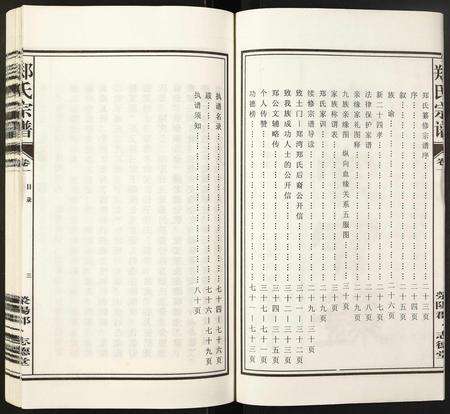 郑氏宗谱
卷一
荥阳郡·志德堂
郑氏纂修宗谱序……二十三页
序……二十四页
叙……二十五页
族谕……二十六页
新二十四孝……
法律保护家谱……
亲缘家礼图释……
九族亲缘图 纵向血缘关系五服图……三十页
家族称谓表……二十九页
郑氏家训……二十九页
续修宗谱导读……二十九~三十页
致土门·郑湾郑氏后裔公开信……三十一页
致我族成功人士的公开信……三十二~三十三页
郑公文辅略传……三十四~三十五页
个人传赞……三十六~七十页
功德榜……七十一~七十三页
执谱名录……七十四~七十六页
跋……七十六~七十九页
执谱须知……八十页
郑氏宗谱
卷一
目录
三
荥阳郡·志德堂